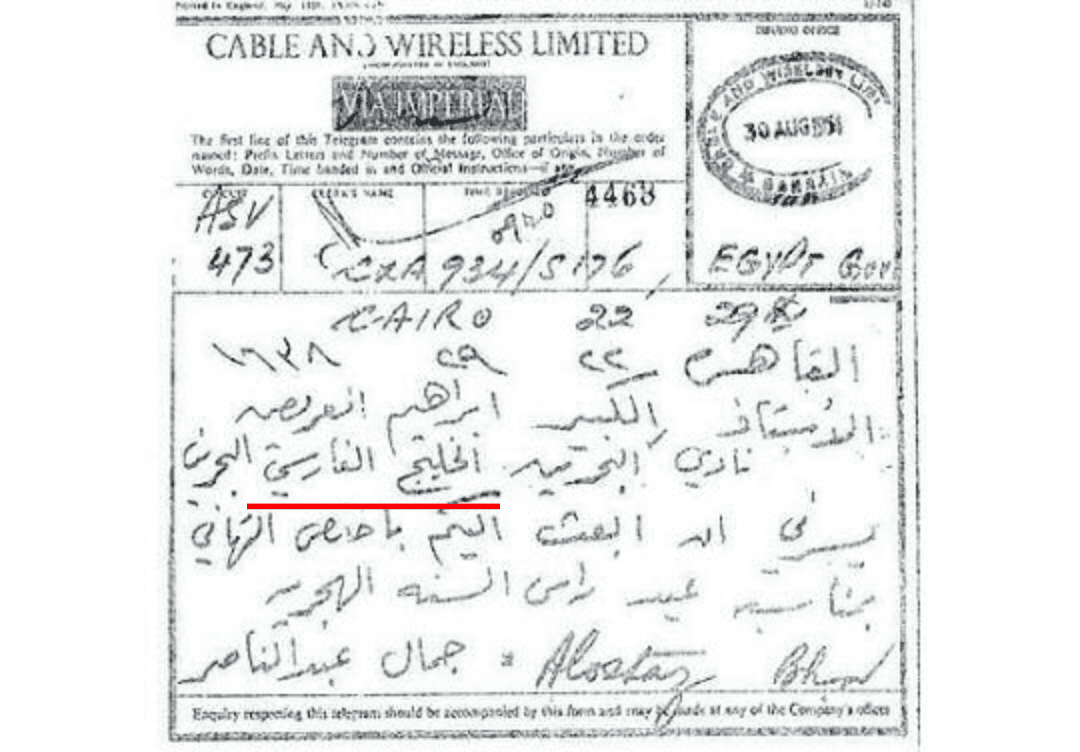 Printed in England. May
CABLE AND WIRELESS LIMITED
(INCORPORATED IN ENGLAND)
VIA IMPERIAL
The first line of this Telegram contains the following particulars in the order
named: Prefix Letters and Number of Message, Office of Origin, Number of
Words, Date, Time handed in and Official Instructions—if any.
ISSUING OFFICE
CABLE AND WIRELESS LIMITED
30 AUG 195
BAHRAIN
CIRCUIT CLERK'S NAME TIME RECEIVED 4463
ASV
473
0920
CXA 934/S176
EGYPT Govt
CAIRO 22 29
القاهرة ٢٢ ٢٩ ١٦٣٨
الأستاذ الكبير ابراهيم العريض
نادي البحرين الخليج الفارسي البحرين
يسرني ان ابعث اليكم باخلص التهاني
بمناسبة عيد راس السنة الهجرية
جمال عبدالناصر
Alostaz
Enquiry respecting this telegram should be accompanied by this form and may be made at any of the Company's offices